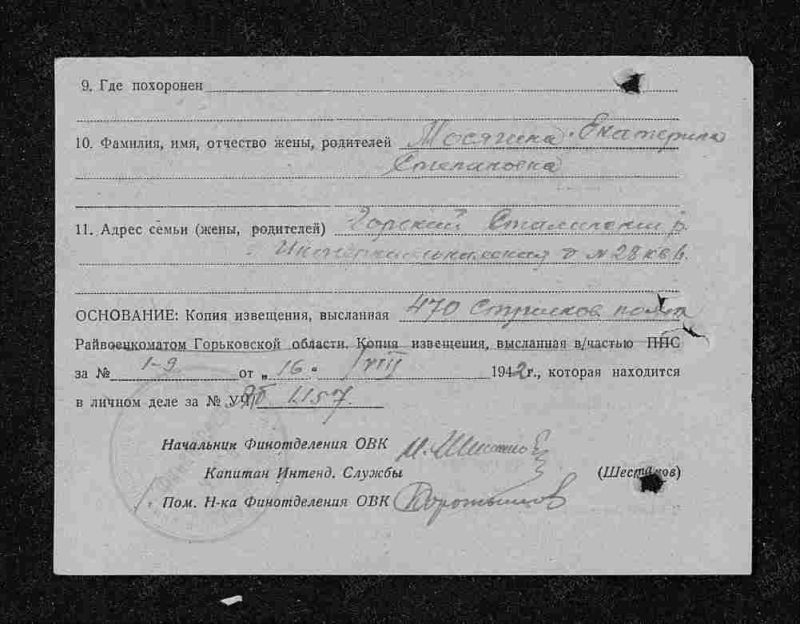 9. Где похоронен
10. Фамилия, имя, отчество жены, родителей Мосягина Екатерина
Степановна
11. Адрес семьи (жены, родителей) Горький Сталинский р.
д № 28 кв 6.
ОСНОВАНИЕ: Копия извещения, высланная 470 Стрелков полк
Райвоенкоматом Горьковской области. Копия извещения, высланная в/частью ППС
за № 1-9 от „16" VIII 1942г., которая находится
в личном деле за № 1157
Начальник Финотделения ОВК
Капитан Интенд. Службы (Шестаков)
Пом. Н-ка Финотделения ОВК